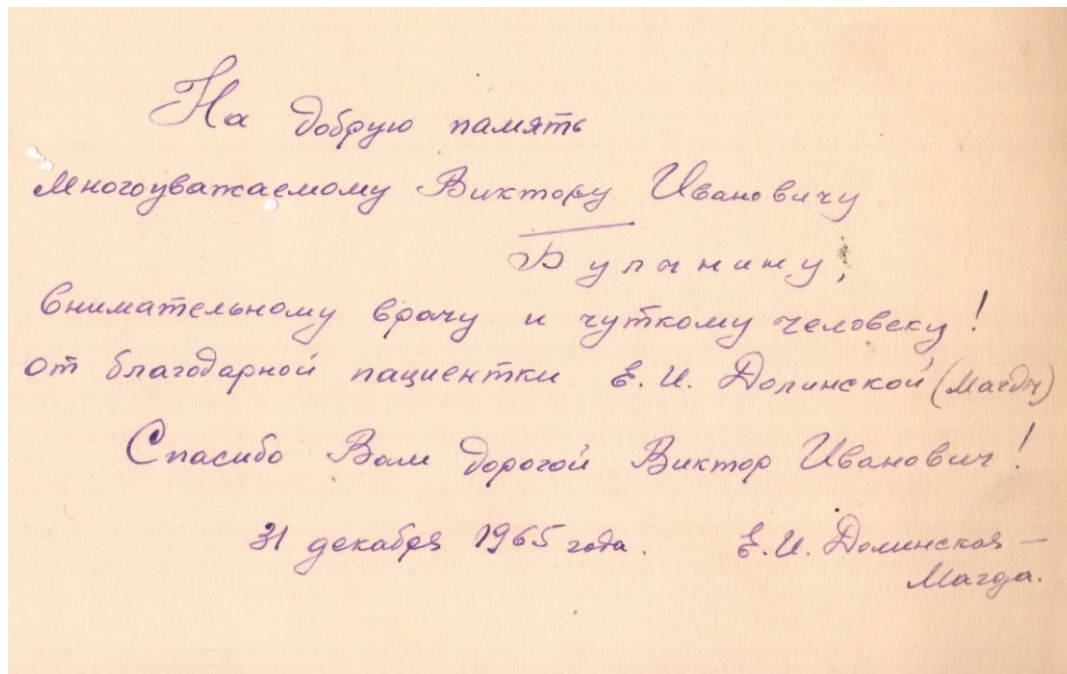 На добрую память
Многоуважаемому Виктору Ивановичу
Булынину,
внимательному врачу и чуткому человеку!
от благодарной пациентки Е. И. Долинской (Магды)
Спасибо Вам дорогой Виктор Иванович!
31 декабря 1965 года. Е. И. Долинская –
Магда.